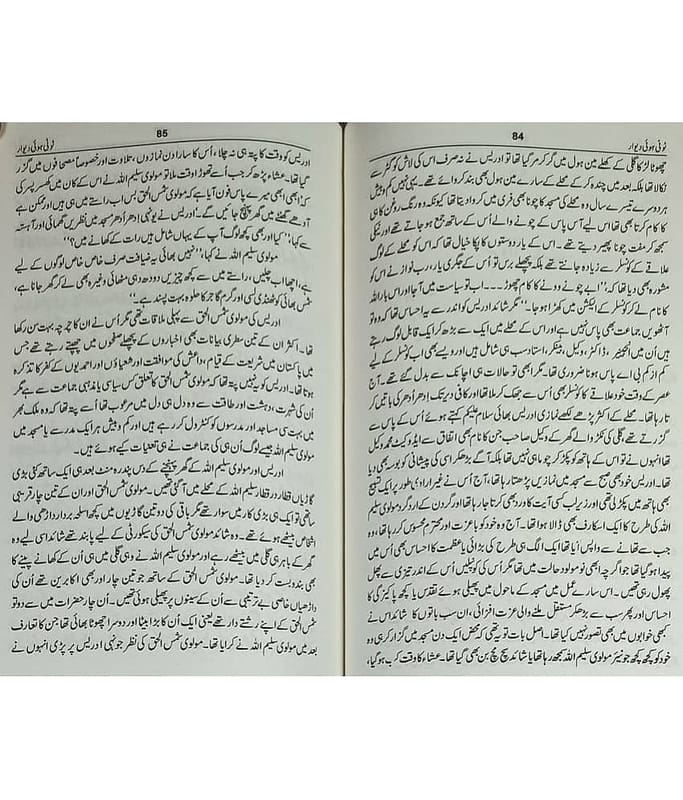 ٹوٹی ہوئی دیوار
84
چھوٹا لڑکا گلی کے کھلے مین ہول میں گر کر مر گیا تھا تو ادریس نے نہ صرف اس کی لاش کو گٹر سے
نکالا تھا بلکہ بعد میں چندہ کر کے محلے کے سارے مین ہول بھی بند کروائے تھے۔ یہی نہیں کم و بیش
ہر دوسرے تیسرے سال وہ محلے کی مسجد کا چونا بھی فری میں کروا دیتا تھا کیونکہ وہ رنگ و روغن کا ہی
کا کام کرتا بھی تھا اس لیے آس پاس کے چونے والے اُس کے ساتھ جمع ہو جاتے تھے اور نیکی
سمجھ کر مفت چونا پھیر دیتے تھے۔ اس کے یار دوستوں کا پکا خیال تھا کہ اس کو محلے کے لوگ
علاقے کے کونسلر سے زیادہ جانتے تھے بلکہ پچھلے برس تو اُس کے جگری یار، رب نواز نے اس کو
مشورہ بھی دیا تھا کہ؛ ”ابے چونے وونے کا کام چھوڑ ۔۔۔ اب تو سیاست میں آجا اور اس بار اللہ
کا نام لے کر کونسلر کے الیکشن میں کھڑا ہو جا۔“ مگر شائد ادریس کو اندر سے یہ احساس تھا کہ وہ تو
آٹھویں جماعت بھی پاس نہیں ہے اور اس کے محلے میں ایک سے بڑھ کر ایک قابل لوگ رہتے
ہیں اُن میں انجینئر، ڈاکٹر، وکیل، بینکر، استاد سب ہی شامل ہیں اور ویسے بھی اب کونسلر کے لیے
کم از کم بی اے پاس ہونا ضروری تھا۔ مگر ابھی تو حالات ہی اچانک سے بدل گئے تھے۔ آج
عصر کے وقت خود علاقے کا کونسلر بھی اُس سے جھک کر ملا تھا اور کافی دیر تک ادھر اُدھر کی باتیں کر
تا رہا تھا۔ محلے کے اکثر پڑھے لکھے نمازی ادریس بھائی سلام علیکم کہتے ہوئے اُس کے پاس سے
گزرتے تھے، گلی کی نکڑ والے گھر کے وکیل صاحب جن کا نام بھی اتفاق سے ایڈوکیٹ محمد وکیل
تھا انہوں نے تو اس کے ہاتھ کو پکڑ کر چوما ہی نہیں تھا بلکہ آگے بڑھ کر اسی کی پیشانی کو بوسہ بھی دیا
تھا۔ ادریس خود بھی صبح سے مسجد میں نمازیں پڑھتا رہا تھا، آج اُس نے غیر ارادی طور پر ایک تسبیح
بھی ہاتھ میں پکڑ لی تھی اور زیر لب کسی آیت کا ورد بھی کرتا جا رہا تھا اور گردن کے ارد گرد مولوی سلیم
اللہ کی طرح کا ایک اسکارف بھی ڈالا ہوا تھا۔ آج وہ خود کو باعزت اور محترم محسوس کر رہا تھا، وہ
جب سے تھانے سے واپس آیا تھا ایک الگ ہی طرح کی بڑائی یا عظمت کا احساس بھی اُس میں
پیدا ہو گیا تھا جو اگرچہ ابھی نومولود حالت میں تھا مگر پھر بھی اُس کی کونپلیں اُس کے اندر تیزی سے پھل
پھول رہی تھیں۔ اس سارے عمل میں مسجد کے ماحول میں پھیلی ہوئی تقدیس یا کچھ پاکیزگی کا
احساس اور پھر سب سے بڑھ کر مستقل ملنے والی عزت افزائی، ان سب باتوں کا شائد اس نے
کبھی خوابوں میں بھی تصور نہیں کیا تھا۔ اصل بات تو یہ تھی کہ محض ایک دن مسجد میں گزار کر ہی وہ
خود کو کچھ کچھ جونیئر مولوی سلیم اللہ سمجھ رہا تھا یا شائد سچ مچ بن بھی گیا تھا۔ عشاء کا وقت کب ہو گیا،
ٹوٹی ہوئی دیوار
85
ادریس کو وقت کا پتہ ہی نہ چلا، اُس کا سارا دن نمازوں، تلاوت اور خصوصاً مصافحوں میں گزر
گیا تھا۔ عشاء پڑھ کر جب اُسے تھوڑا وقت ملا تو مولوی سلیم اللہ نے اس کے کان میں کھسر پسر کی
کہ؛ ابھی ابھی میرے پاس فون آیا ہے کہ مولوی شمس الحق بس اب راستے میں ہی ہیں اور ممکن ہے
آدھے گھنٹے میں گھر پہنچ جائیں گے۔ ادریس نے یونہی ادھر اُدھر مسجد میں نظریں گھمائی اور آہستہ
سے کہا؛ ”کیا اور بھی کچھ لوگ آپ کے یہاں شامل ہیں رات کے کھانے میں؟“
مولوی سلیم اللہ نے کہا، ”نہیں بھائی یہ ضیافت صرف خاص خاص لوگوں کے لیے
ہے، اچھا اب چلیں، راستے میں سے کچھ چیزیں دودھ دہی مٹھائی وغیرہ بھی لے کر گھر جانا ہے،
شمس بھائی کو ٹھنڈی کسی اور گرم گاجر کا حلوہ بہت پسند ہے۔“
ادریس کی مولوی شمس الحق سے پہلی ملاقات تھی مگر اُس نے ان کا چرچہ بہت سن رکھا
تھا۔ اکثر ان کے تین سطری بیانات بھی اخباروں کے پچھلے صفحوں میں چھپتے رہتے تھے جس
میں پاکستان میں شریعت کے قیام، داعش کی موافقت اور شعیاؤں اور احمدیوں کے کفر کا تذکرہ
ہوتا تھا۔ ادریس کو یہ نہیں پتہ تھا کہ مولوی شمس الحق کا تعلق کس سیاسی یا مذہبی جماعت سے ہے مگر
اُن کی شہرت، دہشت اور طاقت سے وہ دل ہی دل میں مرعوب تھا اُسے پتہ تھا کہ وہ ملک بھر
میں بہت سی مساجد اور مدرسوں کو کنٹرول کر رہے ہیں اور کم و بیش ہر ایک مدرسے یا مسجد میں
مولوی سلیم اللہ جیسے لوگ اُن ہی کی جماعت نے ہی تعینات کیے ہوئے ہیں۔
ادریس اور مولوی سلیم اللہ کے گھر پہنچنے کے دس پندرہ منٹ بعد ہی ایک ساتھ کئی بڑی
گاڑیاں قطار در قطار سلیم اللہ کے محلے میں آ گئی تھیں۔ مولوی شمس الحق اور ان کے تین چار قریبی
ساتھی تو ایک ہی بڑی کار میں سوار تھے مگر باقی کی دو تین گاڑیوں میں کچھ اسلحہ بردار داڑھی والے
اشخاص بیٹھے ہوئے تھے۔ وہ شائد مولوی شمس الحق کی سیکورٹی کے لیے پابند تھے شائد اسی لیے وہ
گھر کے باہر ہی گلی میں بیٹھے رہے اور مولوی سلیم اللہ نے وہی گلی میں ہی اُن کے کھانے پینے کا
بھی بندوبست کر دیا تھا۔ مولوی شمس الحق کے ساتھ جو تین چار اور بھی اکابرین تھے اُن کی
داڑھیاں خاصی بے ترتیبی سے اُن کے سینوں پر پھیلی ہوئی تھیں۔ اُن چار حضرات میں سے دو تو
شمس الحق کے اپنے رشتے دار تھے یعنی ایک اُن کا بڑا بیٹا اور دوسرا چھوٹا بھائی تھا جن کا تعارف
بعد میں مولوی سلیم اللہ نے کرایا تھا۔ مولوی شمس الحق کی نظر جوں ہی ادریس پر پڑی انہوں نے